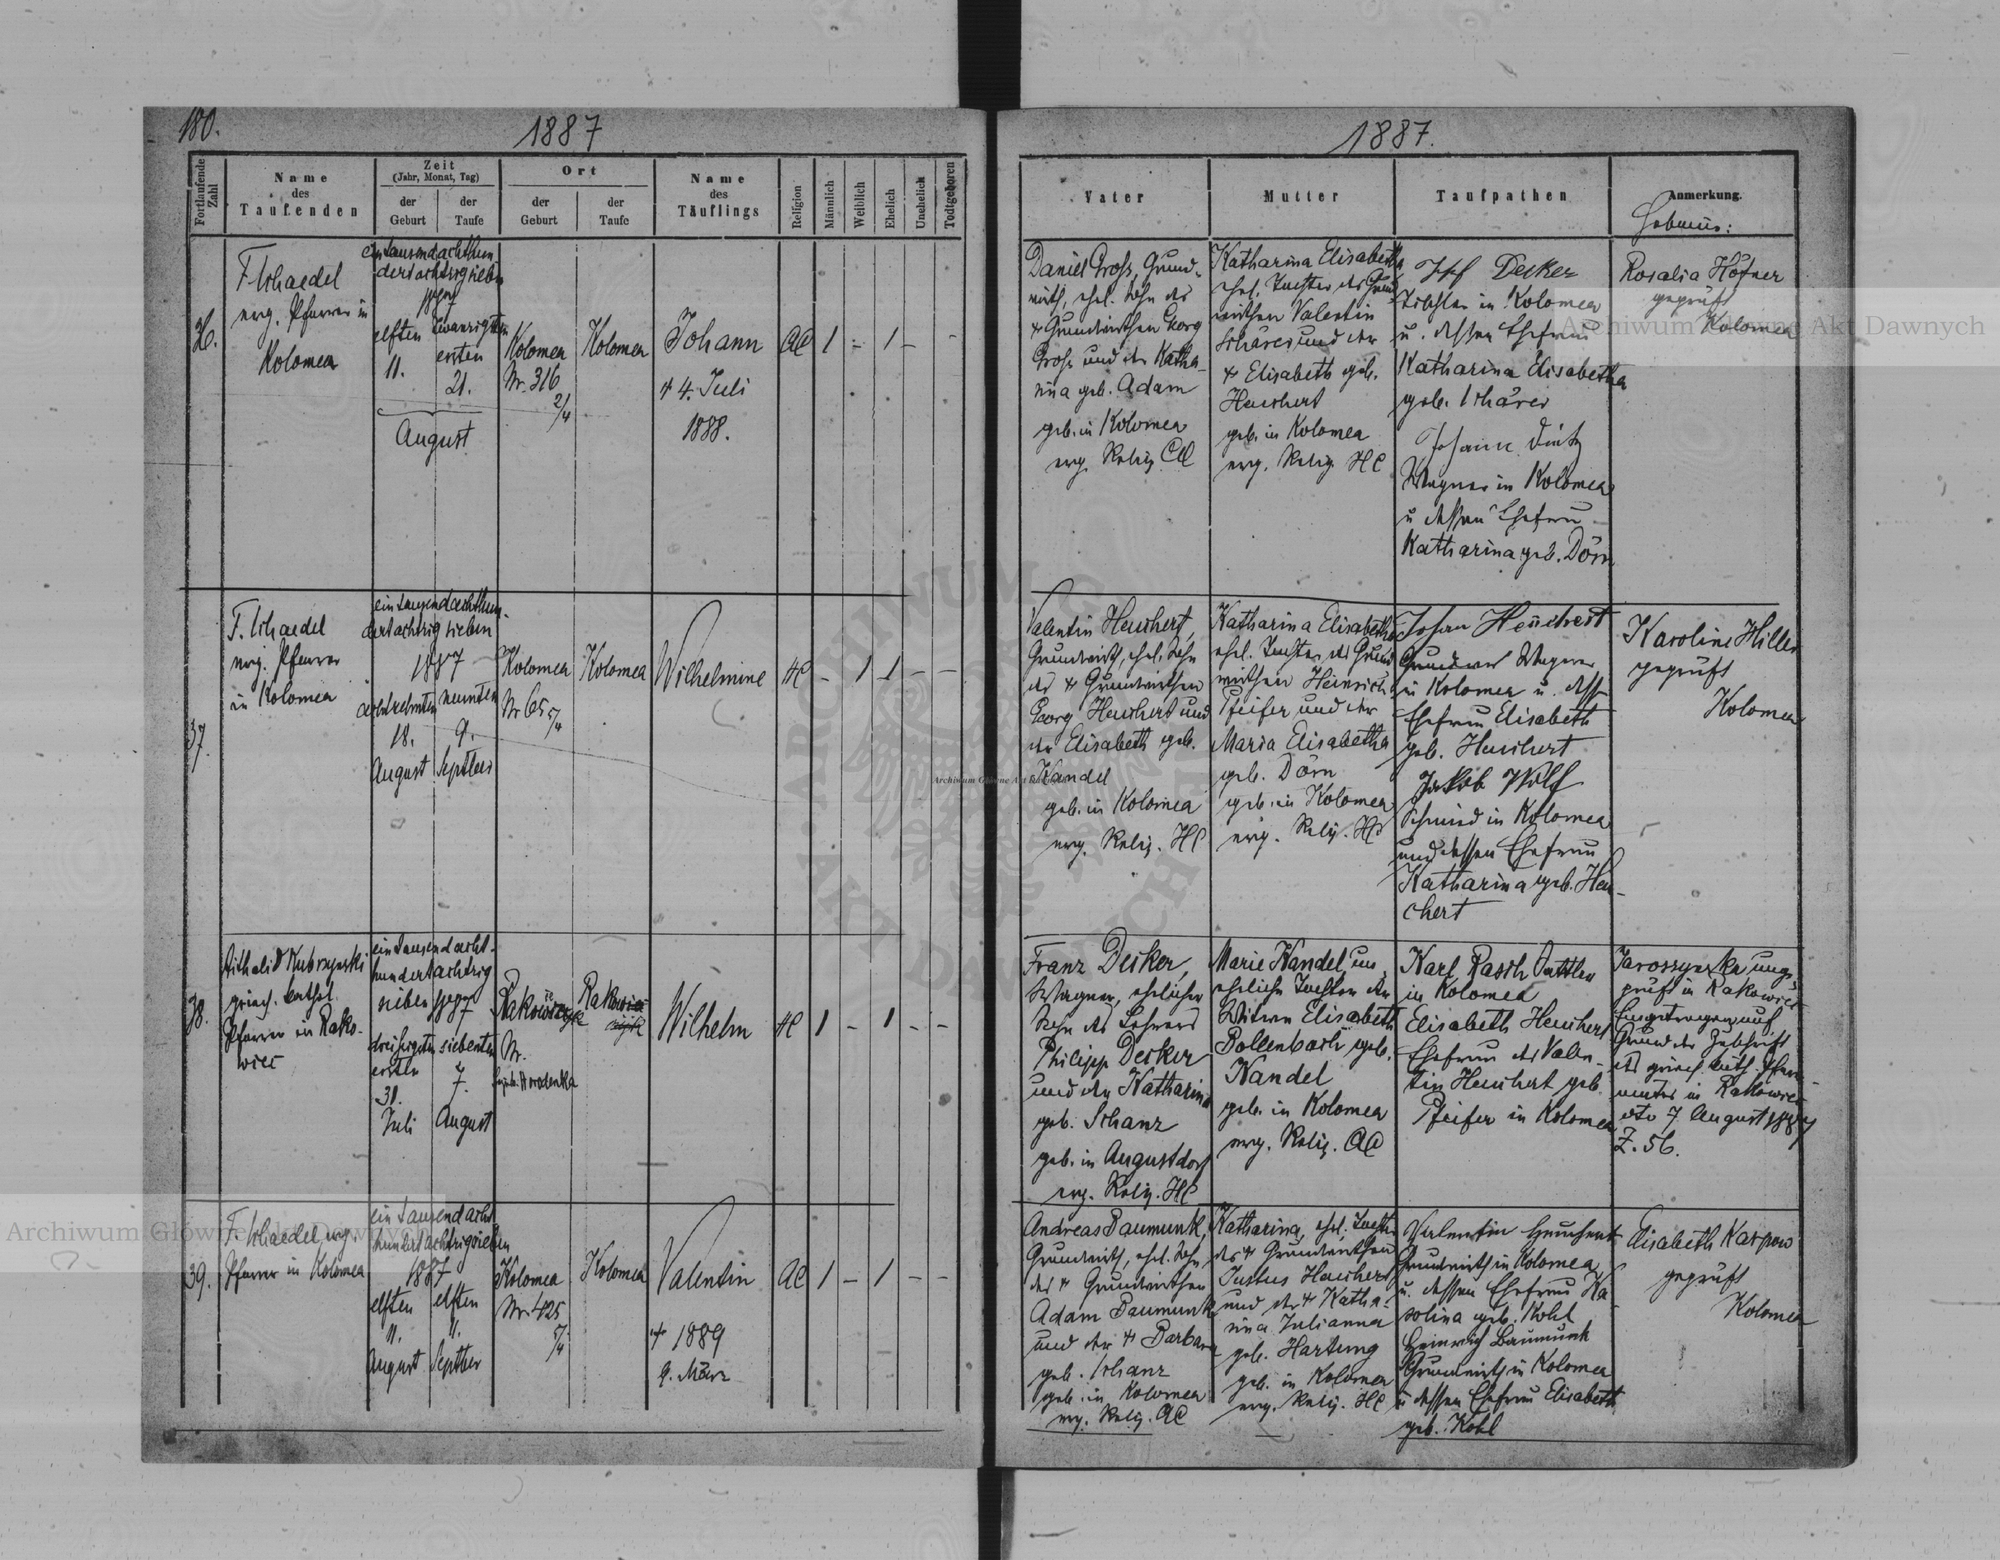 180.
1887
1887.
Fortlaufende Zahl
Name
des
Taufenden
Zeit
(Jahr, Monat, Tag)
der
Geburt
der
Taufe
Ort
der
Geburt
der
Taufe
Name
des
Täuflings
Religion
Männlich
Weiblich
Ehelich
Unehelich
Todtgeboren
Vater
Mutter
Taufpathen
Anmerkung.
36.
F Schaedel
evg. Pfarrer in
Kolomea
ein tausend achthun
dert achtzig sieben
1887
elften
11.
zwanzigsten
ersten
21.
August
Kolomea
Nr. 316
2/4
Kolomea
Johann
+ 4. Juli
1888.
AC
1
-
1
-
-
Daniel Gross, Grund-
wirth, ehel. Sohn des
+ Grundwirthen Georg
Gross und der Katha-
rina geb. Adam
geb. in Kolomea
evg. Relig. AC
Katharina Elisabetha
ehel. Tochter des Grund
wirthen Valentin
Schärer und der
+ Elisabeth geb.
Heuchert
geb. in Kolomea
evg. Relig. HC
Decker
Tischler in Kolomea
u. dessen Ehefrau
Katharina Elisabetha
geb. Schärer
Johann
Wagner in Kolomea
u dessen Ehefrau
Katharina geb. Dörn
Rosalia Höfner
geprüft
Kolomea
37.
F. Schaedel
evg. Pfarrer
in Kolomea
ein tausend achthun-
dert achtzig sieben
1887
achtzehnten
18.
August
neunten
9.
Septber
Kolomea
Nr 65
5/4
Kolomea
Wilhelmine
HC
-
1
1
-
-
Valentin Heuchert,
Grundwirth, ehel. Sohn
des + Grundwirthen
Georg Heuchert und
der Elisabeth geb.
Kandel
geb. in Kolomea
evg. Relig. HC
Katharina Elisabetha
ehel. Tochter des Grund
wirthen Heinrich
Pfeifer und der
Maria Elisabetha
geb. Dörn
geb. in Kolomea
evg. Relig. HC
Johan Heuchert
Wagner
in Kolomea u. dess
Ehefrau Elisabeth
geb. Heuchert
Jakob Wolf
Schmied in Kolomea
und dessen Ehefrau
Katharina geb. Heu-
chert
Karoline Hiller
geprüft
Kolomea
38.
griech. kathol.
Pfarrer in Rako-
wiec
ein tausend acht-
hundert achtzig
sieben 1887
dreissigsten
ersten
31.
Juli
siebenten
7.
August
Nr.
Horodenka
Wilhelm
HC
1
-
1
-
-
Franz Decker,
Wagner, ehelicher
Sohn des Lehrers
Philipp Decker
und der Katharina
geb. Schanz
geb. in Augustdorf
evg. Relig. HC
Marie Kandel, un
eheliche Tochter der
Witwe Elisabeth
Bollenbach geb.
Kandel
geb. in Kolomea
evg. Relig. AC
Karl Rasch Sattler
in Kolomea
Elisabeth Heuchert
Ehefrau des Valen-
tin Heuchert geb.
Pfeifer in Kolomea
unge-
prüft in Rakowiec
Eingetragen auf
Grund der Zuschrift
des griech. kath. Pfarr-
amtes in Rakowiec
dto 7 August 1887
Z. 56.
39.
F. Schaedel evg
Pfarrer in Kolomea
ein tausend acht
hundert achtzig sieben
1887
elften
11.
August
elften
11.
Septber
Kolomea
Nr. 425
5/4
Kolomea
Valentin
+ 1889
9. März
AC
1
-
1
-
-
Andreas Baumunk,
Grundwirth, ehel. Sohn
des + Grundwirthen
Adam Baumunk
und der + Barbara
geb. Schanz
geb. in Kolomea
evg. Relig. AC
Katharina, ehel. Tochter
des + Grundwirthen
Justus Heuchert
und der + Katha-
rina Julianna
geb. Hartung
geb. in Kolomea
evg. Relig. HC
Valentin Heuchert
Grundwirth in Kolomea
u. dessen Ehefrau Ka-
rolina geb. Kohl
Heinrich Baumunk
Grundwirth in Kolomea
u dessen Ehefrau Elisabeth
geb. Kohl
Elisabeth Karpow
geprüft
Kolomea
Archiwum Główne Akt Dawnych
Archiwum Główne Akt Dawnych